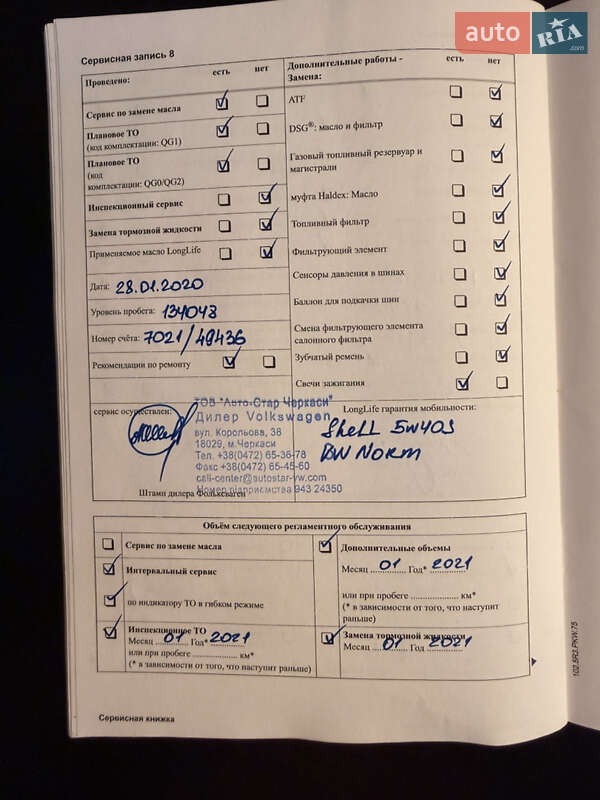 auto RIA .com
Сервисная запись 8
Проведено: есть нет
Сервис по замене масла
Плановое ТО
(код комплектации: QG1)
Плановое ТО
(код
комплектации: QG0/QG2)
Инспекционный сервис
Замена тормозной жидкости
Применяемое масло LongLife
Дата: 28.01.2020
Уровень пробега: 134048
Номер счёта: 7021/49436
Рекомендации по ремонту
Дополнительные работы - есть нет
Замена:
ATF
DSG®: масло и фильтр
Газовый топливный резервуар и
магистрали
муфта Haldex: Масло
Топливный фильтр
Фильтрующий элемент
Сенсоры давления в шинах
Баллон для подкачки шин
Смена фильтрующего элемента
салонного фильтра
Зубчатый ремень
Свечи зажигания
сервис осуществлен:
ТОВ "Авто-Стар Черкаси"
Дилер Volkswagen
вул. Корольова, 38
18029, м.Черкаси
Тел. +38(0472) 65-36-78
Факс +38(0472) 65-45-60
call-center@autostar-vw.com
Номер підприємства 943 24350
Штамп дилера Фольксваген
LongLife гарантия мобильности:
Shell 5W40
Norm
Объём следующего регламентного обслуживания
Сервис по замене масла
Интервальный сервис
по индикатору ТО в гибком режиме
Инспекционное ТО
Месяц 01 Год* 2021
или при пробеге .................... км*
(* в зависимости от того, что наступит раньше)
Дополнительные объемы
Месяц 01 Год* 2021
или при пробеге .................... км*
(* в зависимости от того, что наступит
раньше)
Замена тормозной жидкости
Месяц 01 Год 2021
Сервисная книжка
102.5R3.PKW.75